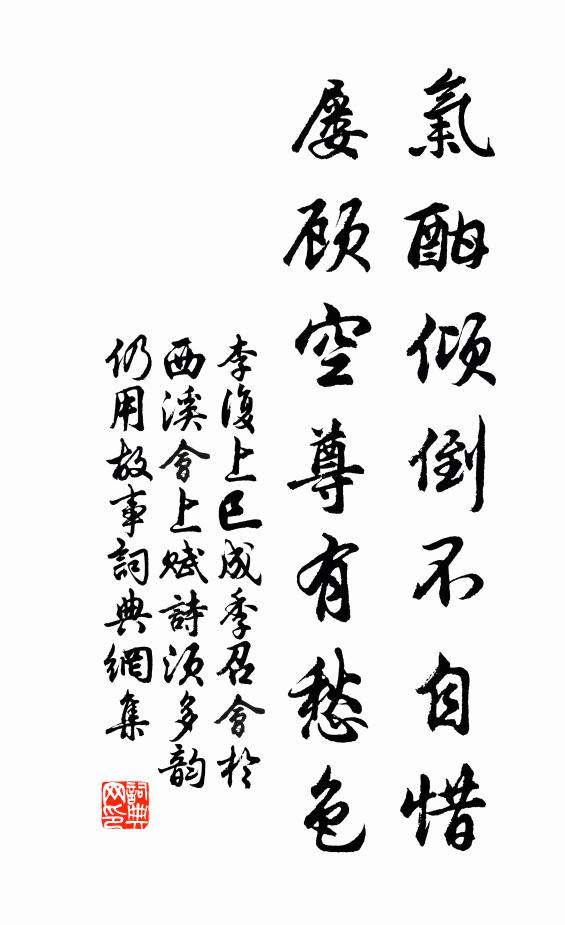 氣酣傾倒不自惜
屡顾空尊有愁色
李復上巳成季召會於
西溪會上赋詩須多韵
仍用故事詞典網集
詞典
网印